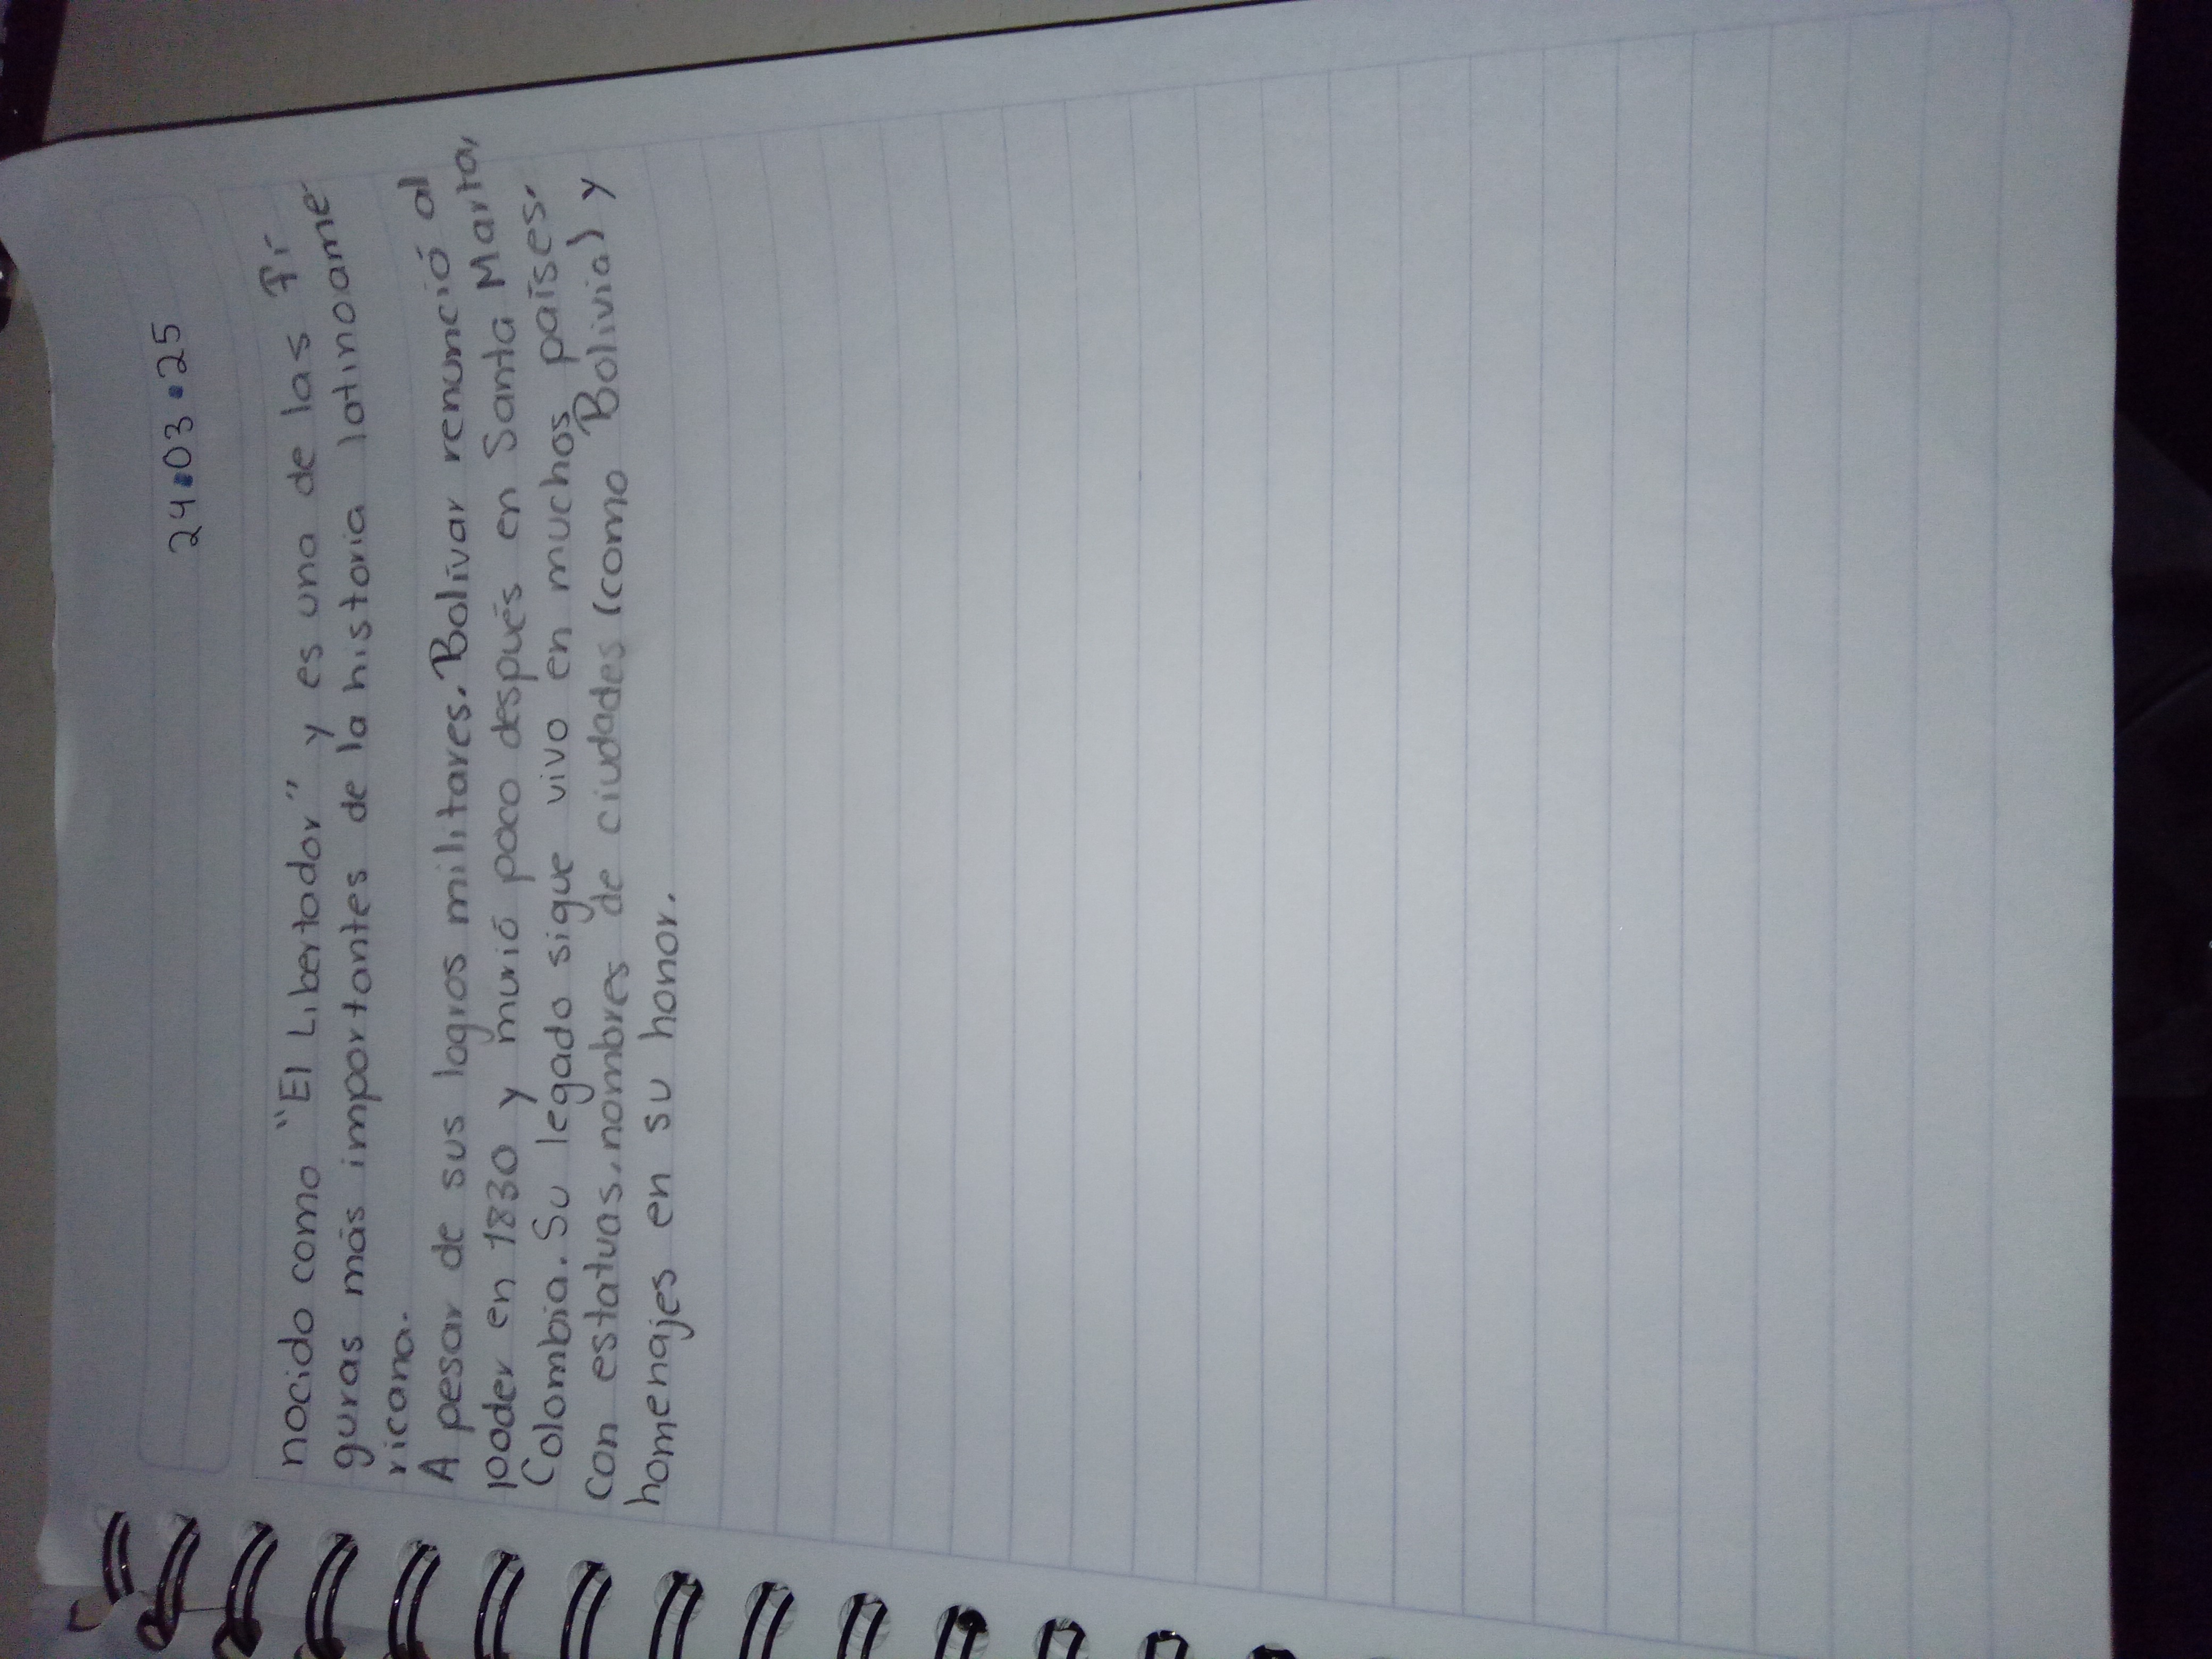 24.03.25
nocido como "El Libertador" y es una de las fi
guras más importantes de la historia latinoame
ricana.
A pesar de sus logros militares, Bolívar renunció al
poder en 1830 y murió poco después en Santa Marta,
Colombia. Su legado sigue vivo en muchos países,
con estatuas, nombres de ciudades (como Bolivia) y
homenajes en su honor.